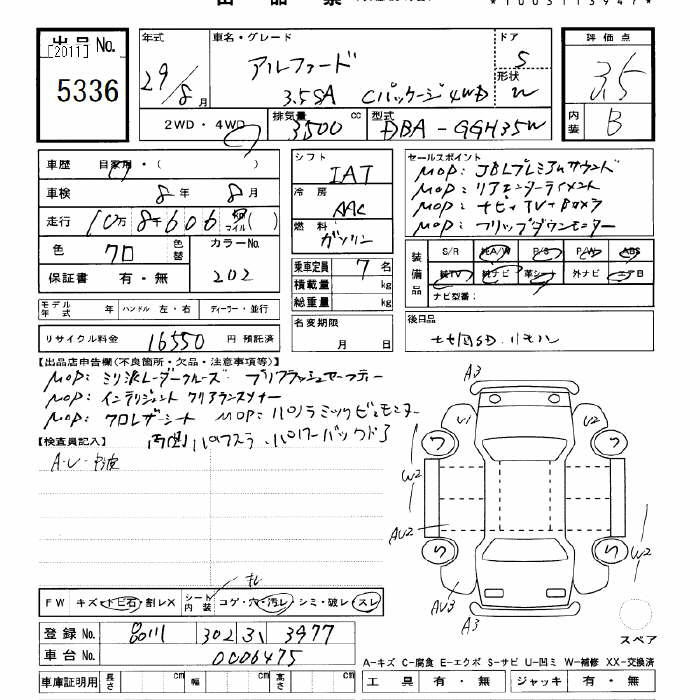 出品票
*1003113947*
出品No.
[2011]
5336
年式
29/8月
車名・グレード
アルファード
3.5SA Cパッケージ 4WD
ドア
5
形状
W
評価点
3.5
内装
B
2WD・4WD
排気量
3500
cc
型式
DBA-GGH35W
車歴
自家用・( )
車検
8年 8月
走行
10万8千606
Km
マイル
( )
色
クロ
色替
カラーNo.
202
保証書
有・無
シフト
IAT
冷房
AAC
燃料
ガソリン
乗車定員
7名
積載量
kg
総重量
kg
名変期限
月 日
セールスポイント
MOP: JBLプレミアムサウンド
MOP: リアエンターテイメント
MOP: ナビ+TV+Bカメラ
MOP: フリップダウンモニター
装備品
S/R
純A/W
P/S
P/W
ABS
純TV
純ナビ
革シート
外ナビ
エアB
ナビ型番:
モデル年式
年
ハンドル 左・右
ディーラー・並行
リサイクル料金
16550
円 預託済
後日品
リモコン
【出品店申告欄(不良箇所・欠品・注意事項等)】
MOP: ミリ波レーダークルーズ プリクラッシュセーフティー
MOP: インテリジェントクリアランスソナー
MOP: クロレザーシート MOP: パノラミックビューモニター
両側パワスラ、パワーバックドア
【検査員記入】
A・U・
A3
U1
U2
ワ
ワ
W2
W2
AU2
ワ
ワ
AU3
A3
スペア
FW
キズ・トビ石・割レX
シート内装
コゲ・穴・汚レ・シミ・破レ・スレ
キレ
登録No.
品川 302 ス 3977
車台No.
0006475
車庫証明用
長さ
cm
幅
cm
高さ
cm
A-キズ C-腐食 E-エクボ S-サビ U-凹ミ W-補修 XX-交換済
工具
有・無
ジャッキ
有・無